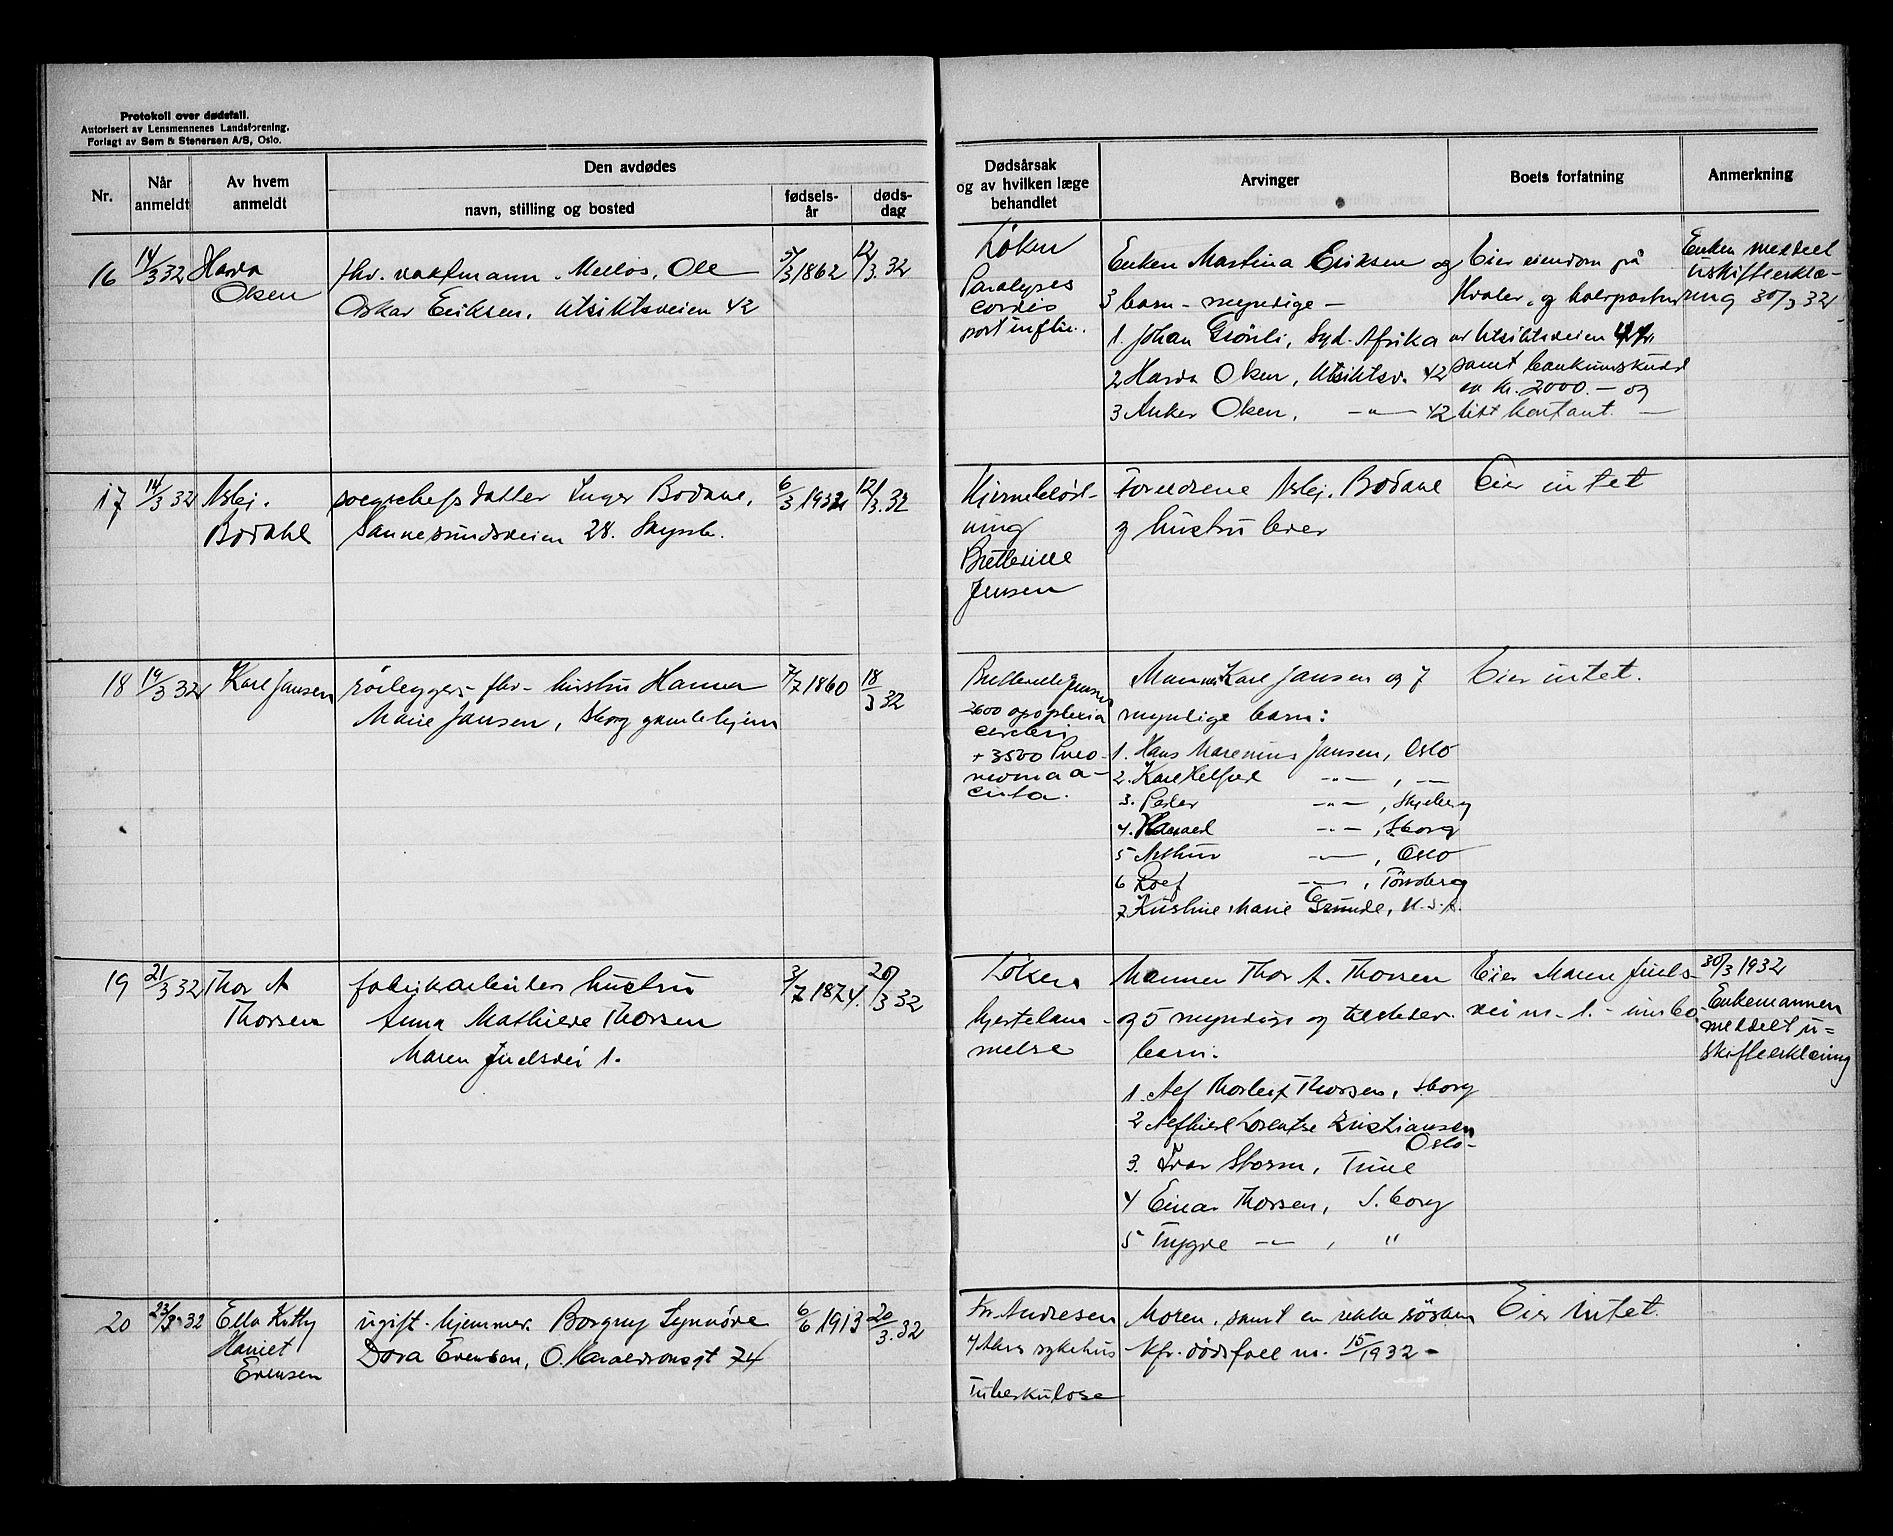 Protokoll over dødsfall.
Autorisert av Lensmennenes Landsforening.
Forlagt av Sem & Stenersen A/S, Oslo.
Nr.
Når anmeldt
Av hvem anmeldt
Den avdødes
navn, stilling og bosted
fødsels-år
døds-dag
Dødsårsak
og av hvilken læge
behandlet
Arvinger
Boets forfatning
Anmerkning
16
14/3 32
Olsen
fhv. vaktmann Ole
Oskar Eriksen, Utsiktsveien 42
5/3 1862
12/3. 32
Løken
Paralyses
cordis
Enken Martina Eriksen og
3 barn - myndige -
1. Johan Grönli, Syd-Afrika
2 Olsen, Utsiktsv. 42
3 Anker Olsen, -"- 42
Eier eiendom på
Hvaler, og
Utsiktsveien
samt
kr. 2000.- og
litt kontant. -
Enken meddelt
uskifteerklæ-
ring 30/3 32
17
14/3 32
Asbj.
Bodahl
datter Inger Bodahl,
Sannesundsveien 28.
6/3 1932
12/3. 32
Hjerneblød-
ning
Bretteville
Jensen
Foreldrene Asbj. Bodahl
og hustru lever
Eier intet
18
14/3 32
Karl Jansen
rörleggers fhv. hustru Hanna
Marie Jansen, Sborg gamlehjem
7/7 1860
18/3 32
Bretteville Jensen
2600 apoplexia
cerebri
+ 3500 Pneu-
monia a-
cuta.
Mannen Karl Jansen og 7
myndige barn:
1. Hans Marenius Jansen, Oslo
2. Karl Helfred -"- , -"-
3. Peder -"- , Skjeberg
4. Harald -"- , Sborg
5 Arthur -"- , Oslo
6 Rolf -"- , Tönsberg
7 Kristine Marie Grunde, U.S.A.
Eier intet.
19
21/3 32
Thor A
Thorsen
fabrikarbeiders hustru
Anna Mathilde Thorsen
Maren Juelsvei 1.
3/7 1874.
20/3 32
Løken
hjertelam-
melse
Mannen Thor A. Thorsen
og 5 myndige og tilstedev.
barn.
1. Alf Thorleif Thorsen, Sborg
2 Alfhild Lorentse Kristiansen
Oslo-
3. Ivar Storm, Tune
4 Einar Thorsen, S.borg
5 Trygve -"- , "
Eier Maren Juels-
vei nr. 1. - innbo
30/3 1932
Enkemannen
meddelt u-
skifteerklæring
20
23/3 32
Ella Kitty
Harriet
Evensen
ugift. hjemmev. Borgny Synnöve
Dora Evensen, O. Haraldsonsgt 74
6/6 1913
20/3. 32
Kr. Andresen
sykehus
Tuberkulose
Moren, samt en rekke sösken
kfr. dödsfall nr. 15/1932 -
Eier intet.